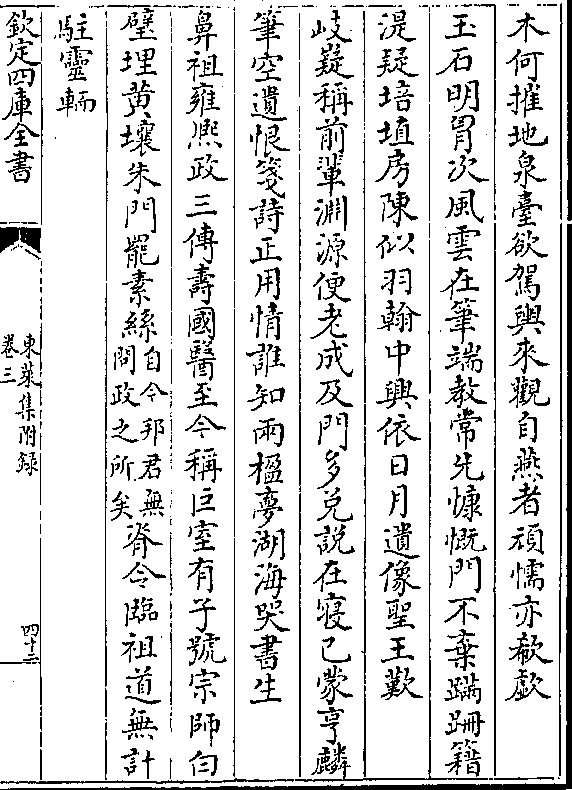 木何摧地泉臺欲駕輿來觀自燕者頑懦亦欷歔
玉石明胷次風雲在筆端教常先慷慨門不棄蹣跚籍
湜疑培埴房陳似羽翰中興依日月遺像聖王歎
岐嶷稱前輩淵源便老成及門多兑說在寢已蒙亨麟
筆空遺恨箋詩正用情誰知兩楹夢湖海哭書生
鼻祖雍熙政三傳壽國醫至今稱巨室有子號宗師白
璧埋黄壤朱門罷素絲自今邦君無問政之所矣脊令臨祖道無計
駐靈輀
欽定四庫全書
東萊集附録
卷三
四十二